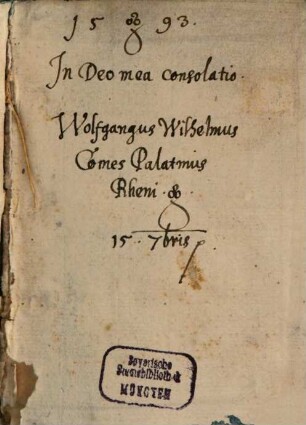 15 93.
In Deo mea consolatio.
Wolfgangus Wilhelmus
Comes Palatinus
Rheni &
15. 7bris
Bayerische
Staatsbibliothek
MÜNCHEN